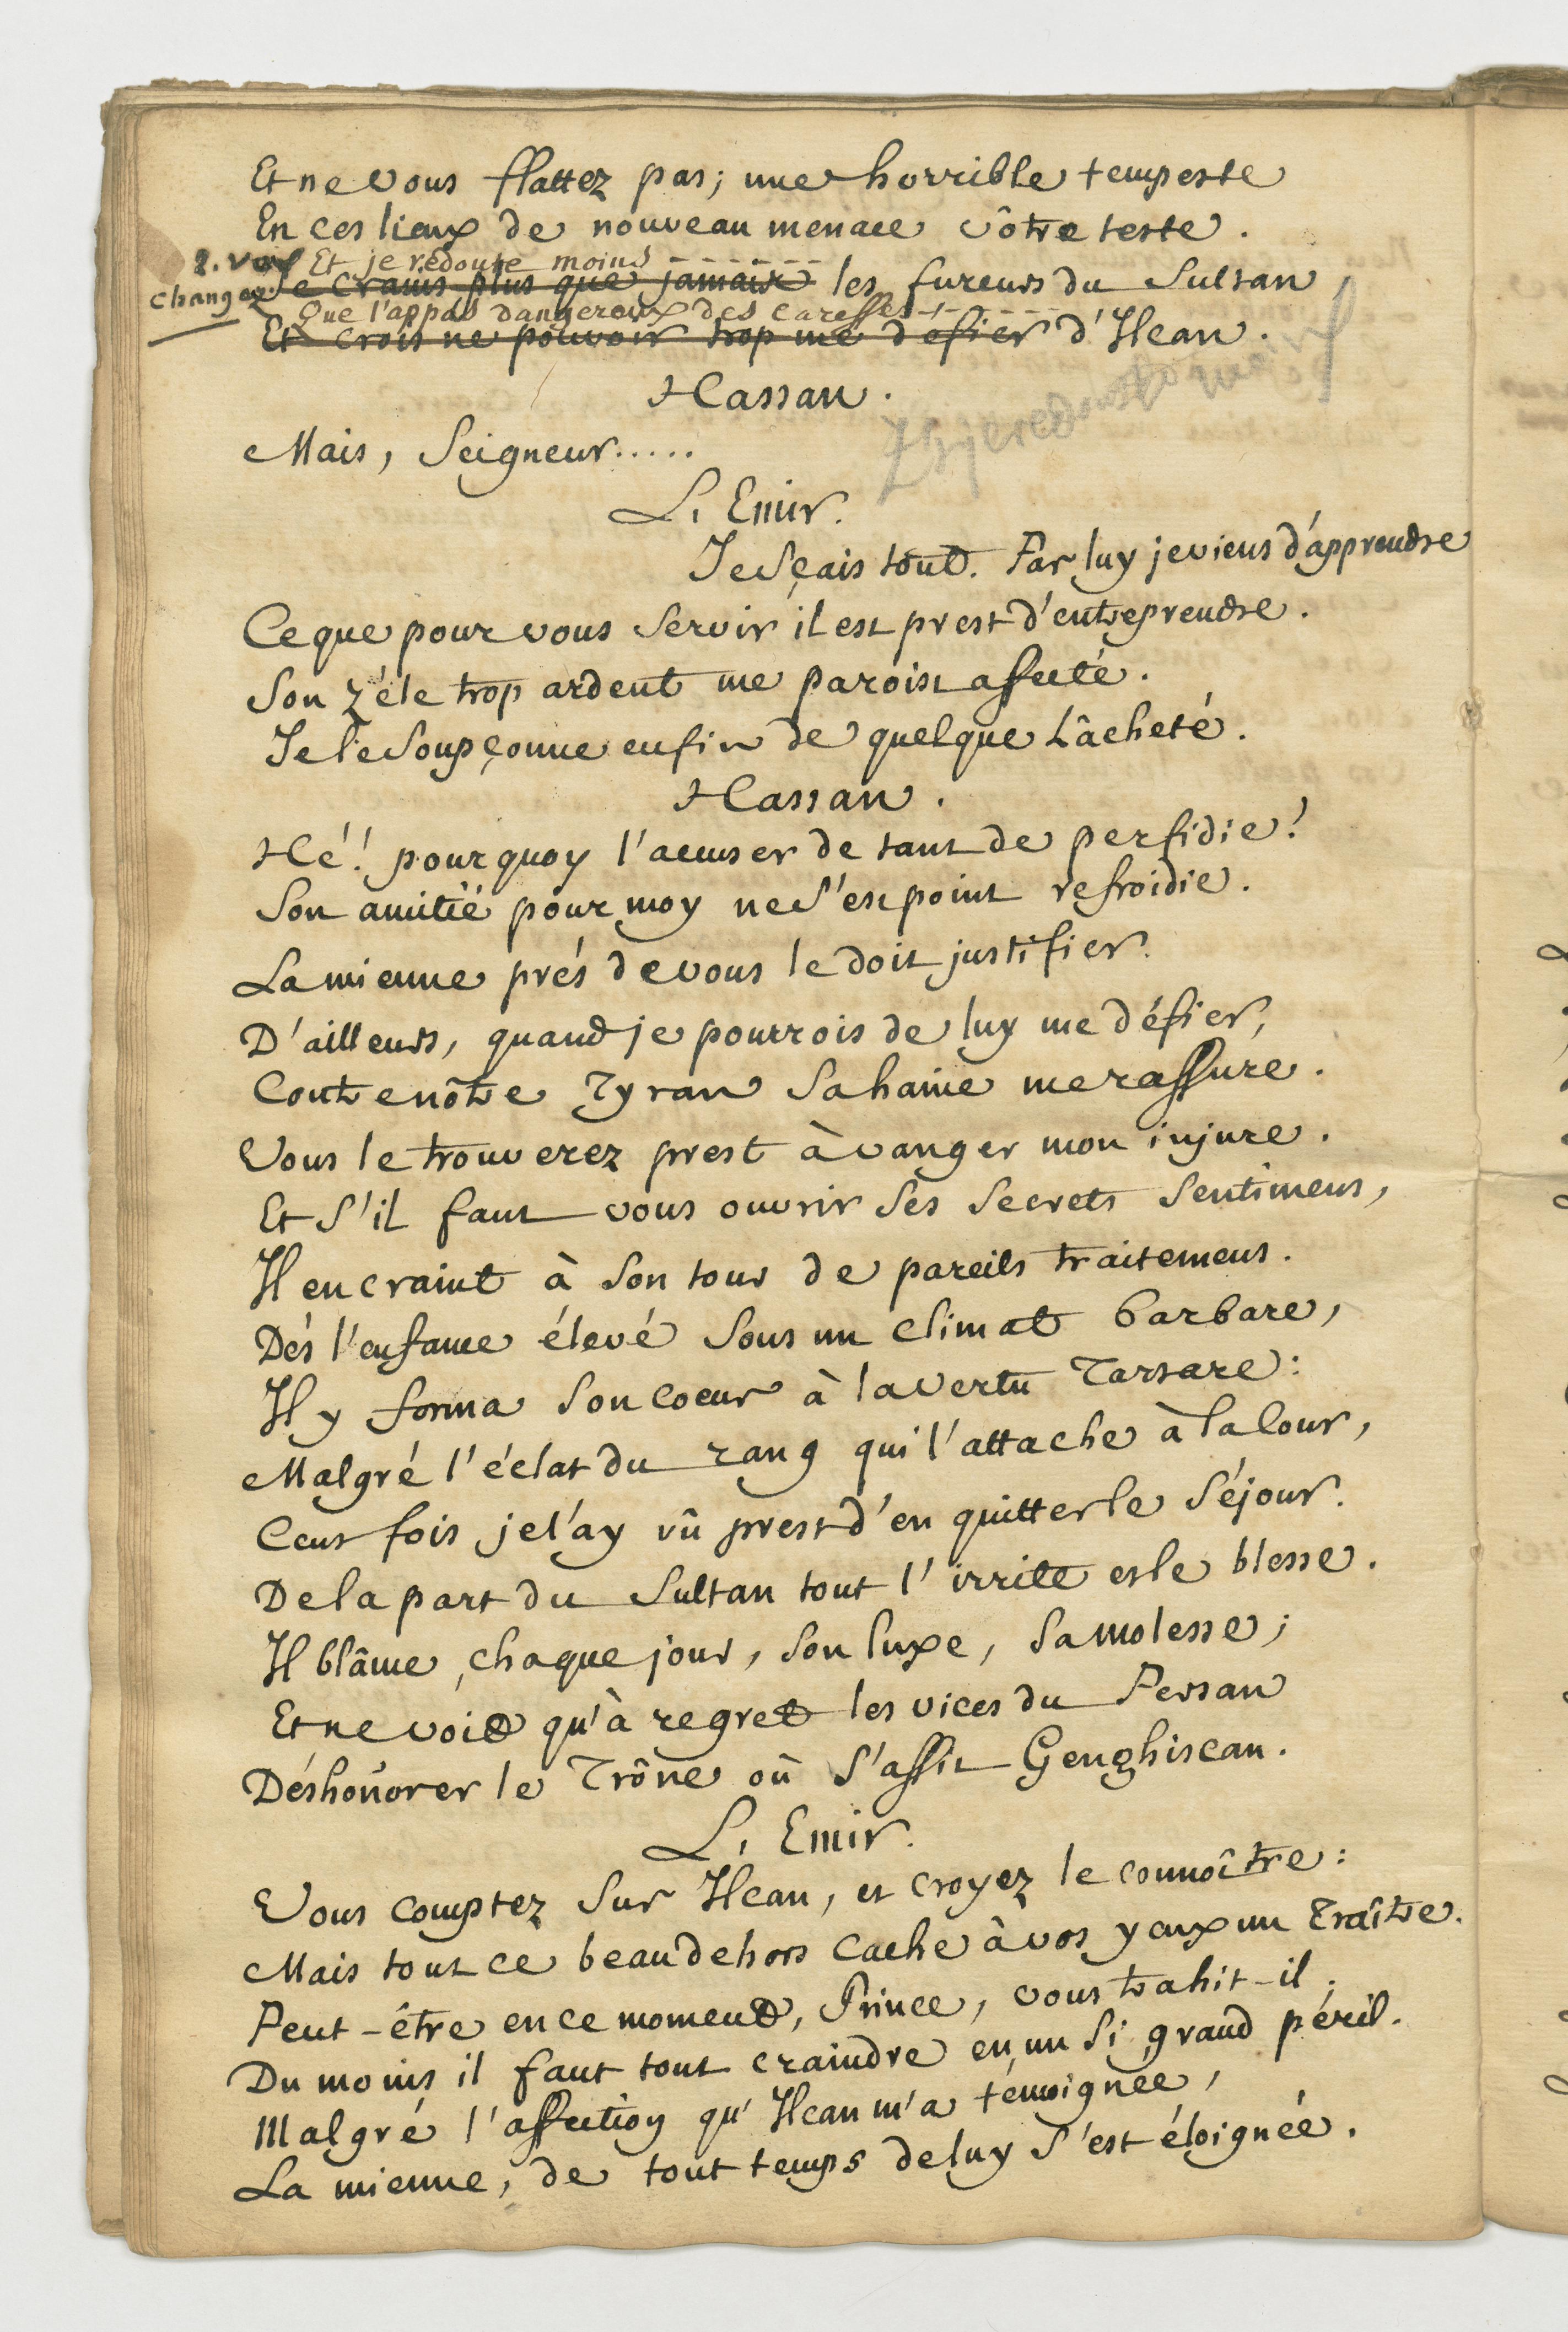 Et ne vous flattez pas; une horrible tempeste
En ces lieux de nouveau menace vôtre teste.
2. vers changez
Et je redoute moins - - - - - -
Je crains plus que jamais les fureurs du Sultan,
Que l'appas dangereux des caresses - - - - -
Et crois ne pouvoir trop me défier d'Ilcan.
Hassan.
Mais, Seigneur.....
L'Emir.
Je Sçais tout. Par luy je viens d'apprendre
Ce que pour vous Servir il est prest d'entreprendre.
Son zéle trop ardent me paroist affecté.
Je le Soupçonne enfin de quelque Lâcheté.
Hassan.
Hé! pourquoy l'accuser de tant de perfidie!
Son amitié pour moy ne S'est point refroidie.
La mienne prés de vous le doit justifier.
D'ailleurs, quand je pourrois de luy me défier,
Contre nôtre Tyran Sa haine me rassure.
Vous le trouverez prest à vanger mon injure.
Et S'il faut vous ouvrir Ses Secrets Sentimens,
Il en craint à Son tour de pareils traitemens.
Dés l'enfance élevé Sous un Climat barbare,
Il y forma Son Coeur à la vertu Tartare:
Malgré l'éclat du rang qui l'attache à la Cour,
Cent fois je l'ay vû prest d'en quitter le Séjour.
De la part du Sultan tout l'irrite et le blesse.
Il blâme, chaque jour, Son luxe, Sa molesse;
Et ne void qu'à regret les vices du Persan
Déshonorer le Trône où S'assit Genghiscan.
L'Emir.
Vous comptez Sur Ilcan, et croyez le connoître:
Mais tout ce beau dehors Cache à vos yeux un Traître.
Peut-être en ce moment, Prince, vous trahit-il;
Du moins il faut tout craindre en un Si grand péril.
Malgré l'affection qu'Ilcan m'a témoignée,
La mienne, de tout temps de luy S'est éloignée.